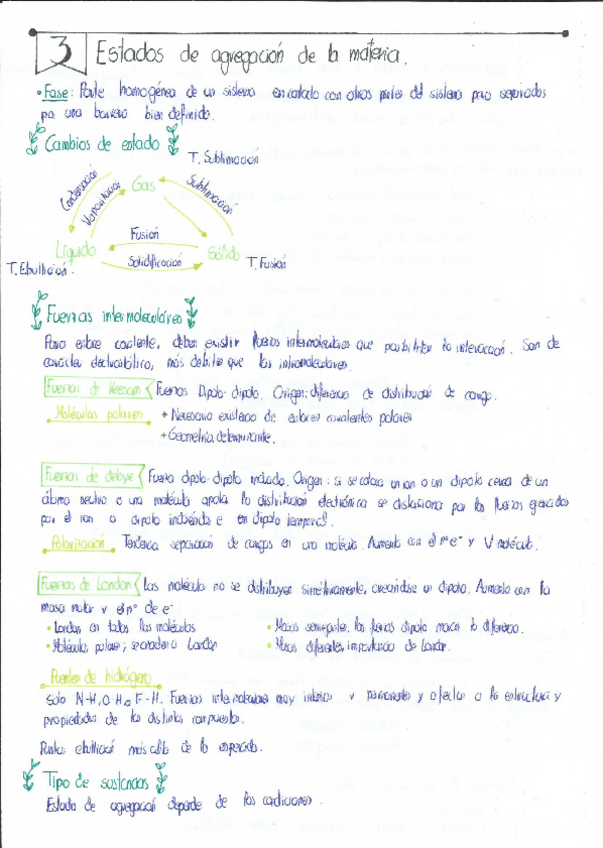 3 Estados de agregación de la materia.
• Fase: Parte homogénea de un sistema en contacto con otras partes del sistema pero separados
por una barrera bien definida.
Cambios de estado
T. Sublimación
Condensación
Vaporización
Gas
Sublimación
Líquido
Fusión
Solidificación
Sólido
T. Ebullición.
T. Fusión
Fuerzas intermoleculares
Para estar deben existir fuerzas intermoleculares que posibiliten la interacción. Son de
carácter electrostático, más débiles que las intramoleculares.
Fuerzas de Keesom Fuerzas Dipolo-dipolo. Origen: diferencia de distribución de carga.
Moléculas polares + Necesario existencia de enlaces covalentes polares
+ Geometría determinante.
Fuerzas de debye Fuerza dipolo-dipolo inducido. Origen: si se coloca un ion o un dipolo cerca de un
átomo neutro o una molécula apolar la distribución electrónica se distorsiona por las fuerzas generadas
por el ion o dipolo en dipolo temporal.
Polarización Tendencia separación de cargas en una molécula. Aumenta con el nº e⁻ y V molécula.
Fuerzas de London Las molécula no se distribuyen simétricamente, creándose un dipolo. Aumenta con la
masa molar y el nº de e⁻
• London en todas las moléculas
• Masas semejante, las fuerzas dipolo marcan la diferencia.
• Moléculas polares;
• Masas diferentes, importancia de London.
Puentes de hidrógeno
Solo N-H, O-H o F-H. Fuerzas intermoleculares muy intensas y permanentes y afectan a la estructura y
propiedades de los distintos compuestos.
Puntos ebullición más altos de lo esperado.
Tipo de sustancias
Estado de agregación depende de las condiciones.